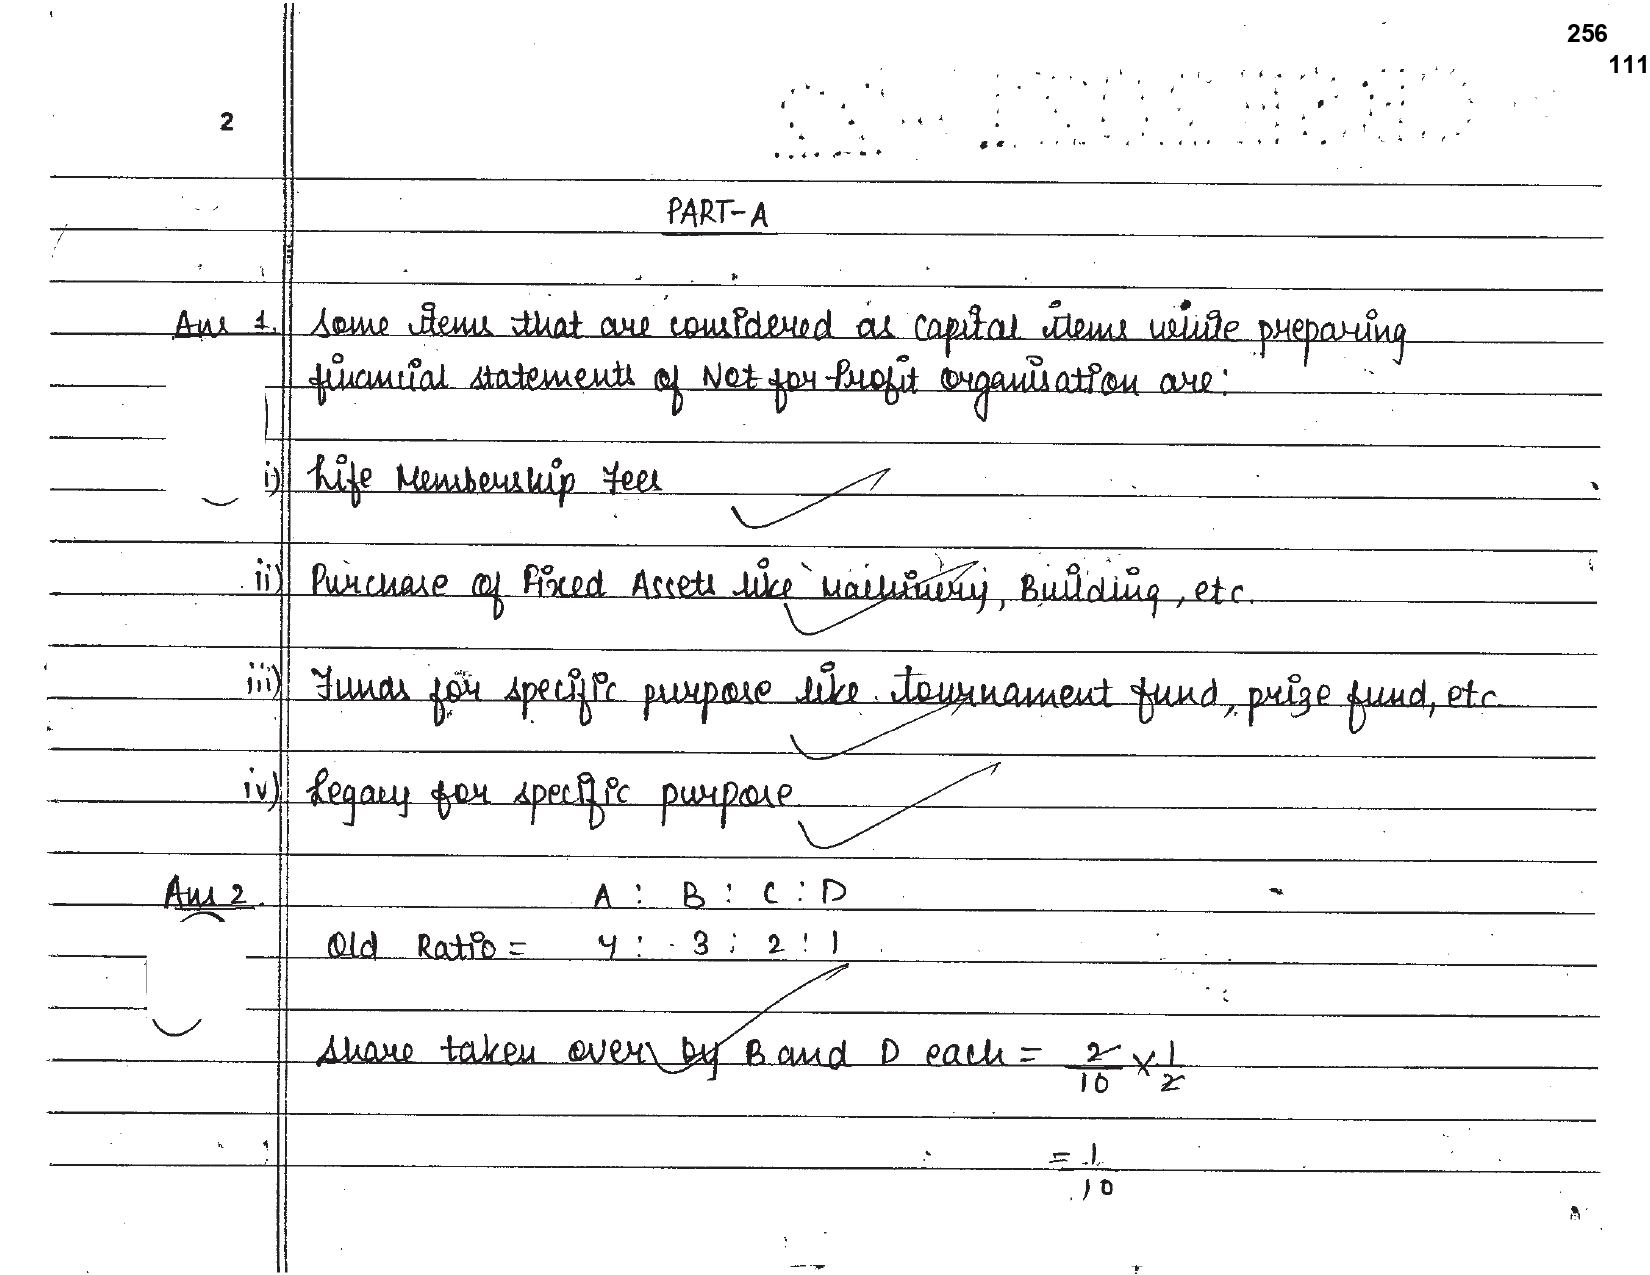 256
111
2
PART-A
Ans 1. Some items that are considered as capital items while preparing
financial statements of Not for Profit Organisation are:
i) Life Membership Fees
ii) Purchase of Fixed Assets like Machinery, Building, etc.
iii) Funds for specific purpose like tournament fund, prize fund, etc
iv) Legacy for specific purpose
Ans 2. A : B : C : D
Old Ratio = 4 : 3 : 2 : 1
Share taken over by B and D each = 2/10 × 1/2
= 1/10